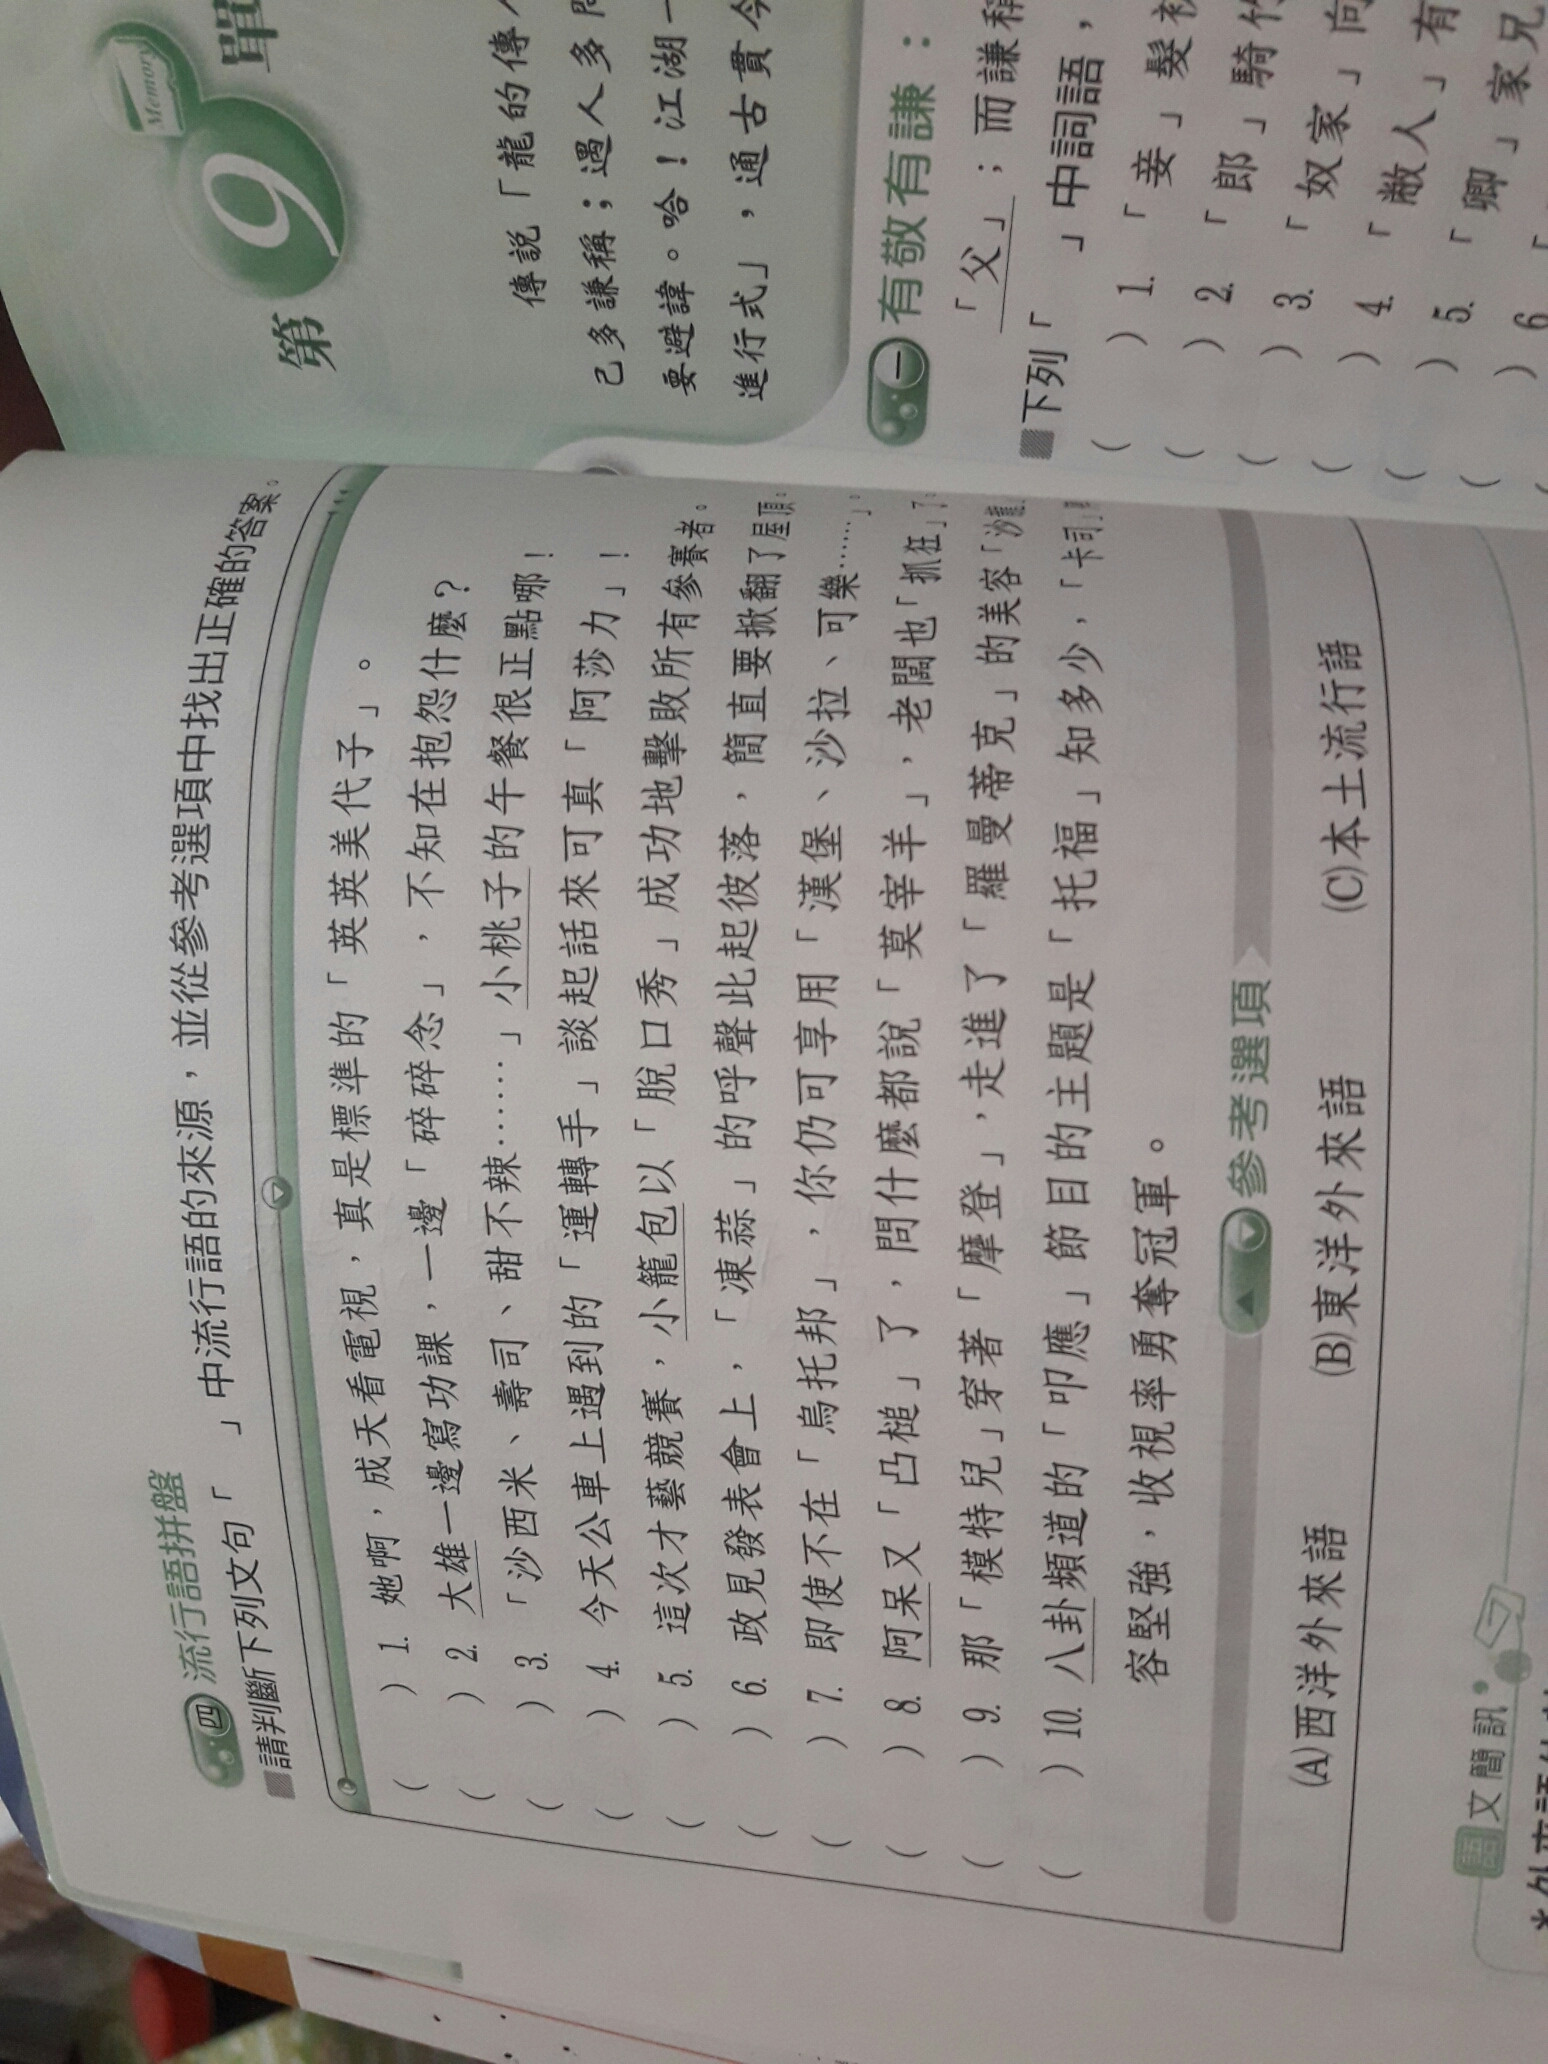 四 流行語拼盤
請判斷下列文句「 」中流行語的來源，並從參考選項中找出正確的答案。
( ) 1. 她啊，成天看電視，真是標準的「英英美代子」。
( ) 2. 大雄一邊寫功課，一邊「碎碎念」，不知在抱怨什麼？
( ) 3. 「沙西米、壽司、甜不辣……」小桃子的午餐很正點哪！
( ) 4. 今天公車上遇到的「運轉手」談起話來可真「阿莎力」！
( ) 5. 這次才藝競賽，小籠包以「脫口秀」成功地擊敗所有參賽者。
( ) 6. 政見發表會上，「凍蒜」的呼聲此起彼落，簡直要掀翻了屋頂。
( ) 7. 即使不在「烏托邦」，你仍可享用「漢堡、沙拉、可樂……」。
( ) 8. 阿呆又「凸槌」了，問什麼都說「莫宰羊」，老闆也「抓狂」了。
( ) 9. 那「模特兒」穿著「摩登」，走進了「羅曼蒂克」的美容「沙龍
( ) 10. 八卦頻道的「叩應」節目的主題是「托福」知多少，「卡司」
容堅強，收視率勇奪冠軍。
參考選項
(A)西洋外來語 (B)東洋外來語 (C)本土流行語
語文簡訊
第9單
Memory
傳說「龍的傳
己多謙稱；遇人多
要避諱。哈！江湖一
進行式」，通古貫今
一 有敬有謙：
「父」；而謙稱
下列「 」中詞語，
( ) 1. 「妾」髮
( ) 2. 「郎」騎竹
( ) 3. 「奴家」向
( ) 4. 「敝人」有
( ) 5. 「卿」家兄
( ) 6. 「